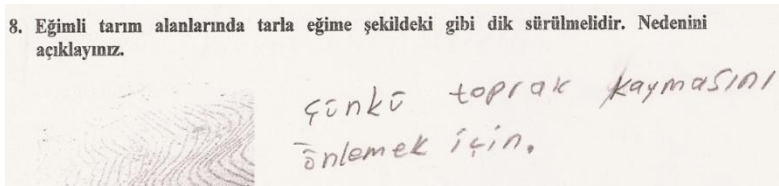 8. Eğimli tarım alanlarında tarla eğime şekildeki gibi dik sürülmelidir. Nedenini
açıklayınız.
çünkü toprak kaymasını
önlemek için.